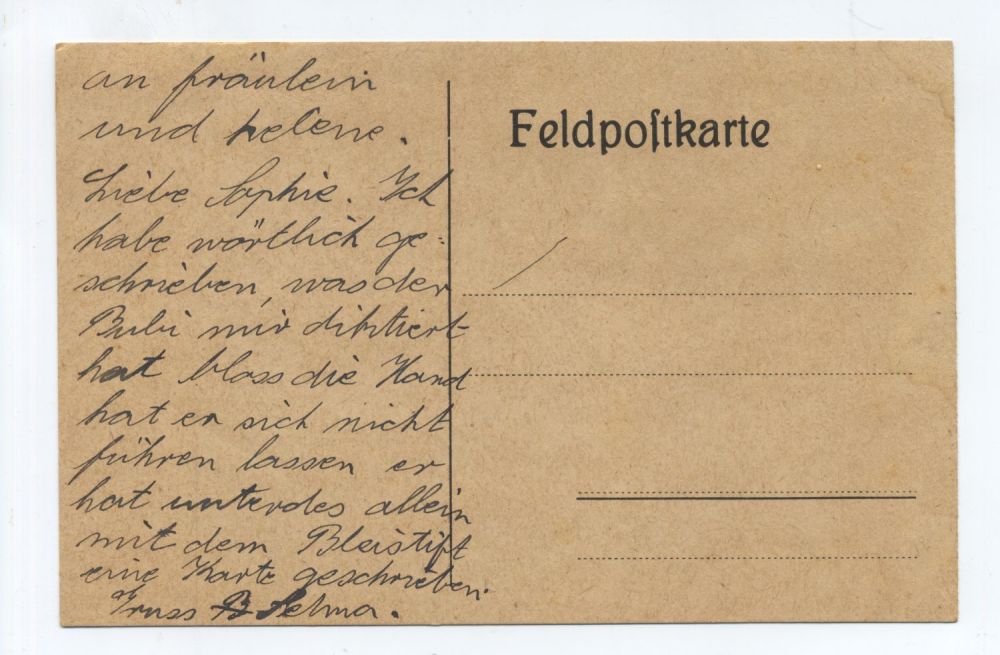 an fräulein
und helene.
Liebe Sophie. Ich
habe wörtlich ge-
schrieben, was der
Bubi mir diktiert
hat bloss die Hand
hat er sich nicht
führen lassen er
hat unterdes allein
mit dem Bleistift
eine Karte geschrieben.
Gruss B Selma.
Feldpoſtkarte